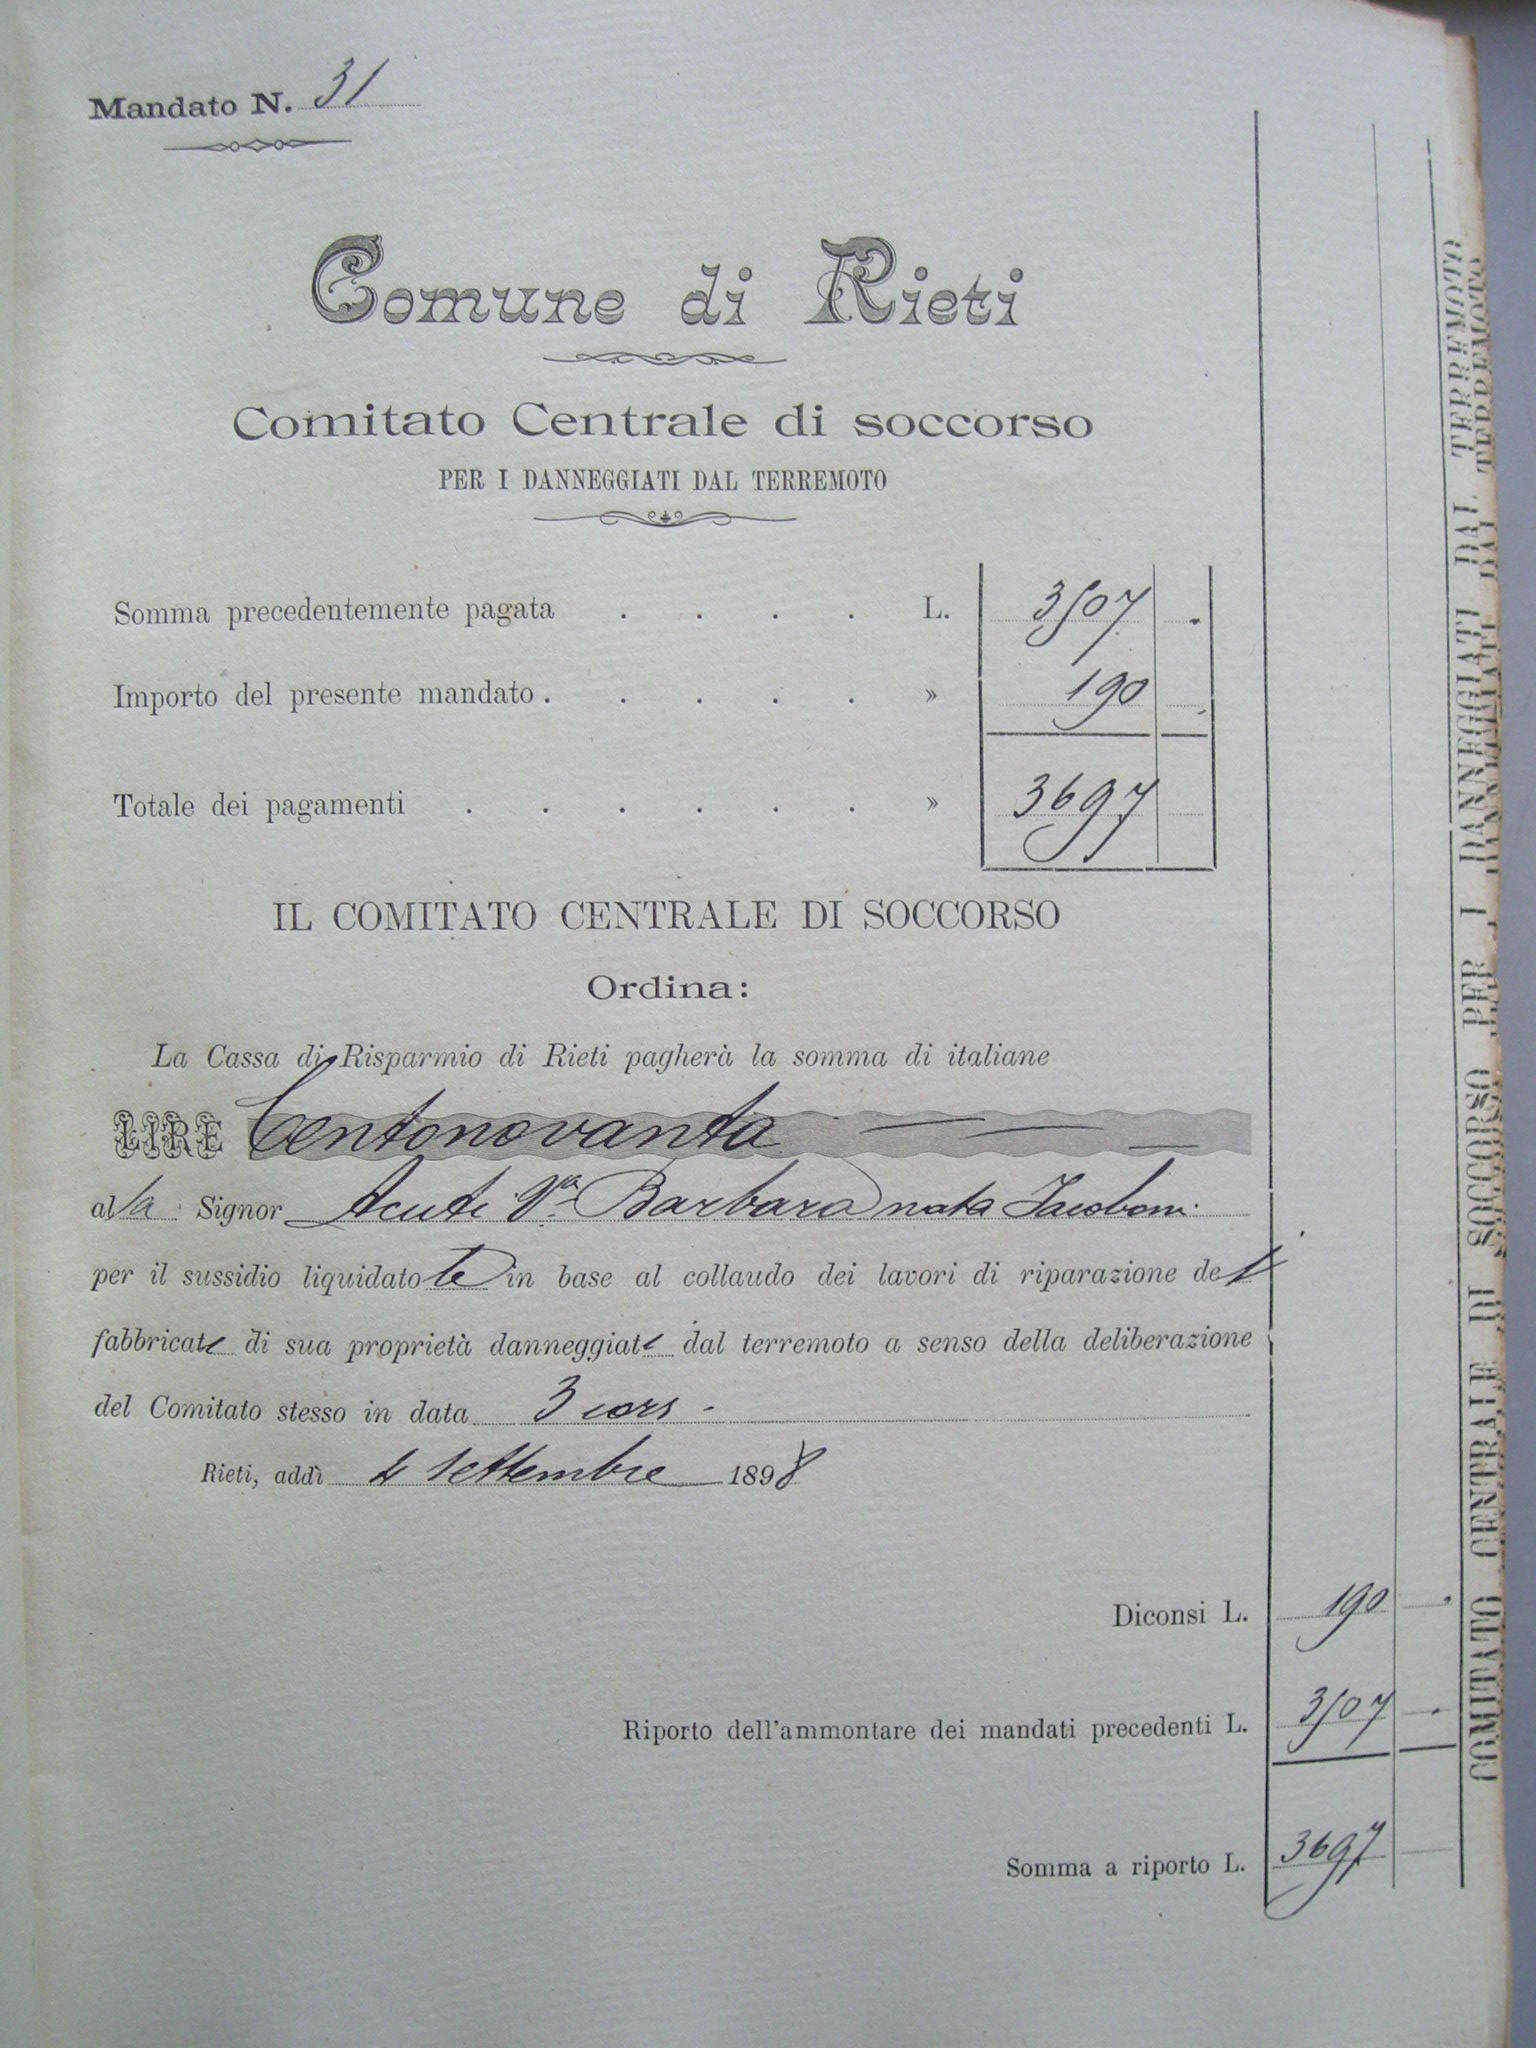 Mandato N. 31
Comune di Rieti
Comitato Centrale di soccorso
PER I DANNEGGIATI DAL TERREMOTO
Somma precedentemente pagata . . . . L. 3507 .
Importo del presente mandato . . . . . » 190 .
Totale dei pagamenti . . . . . . » 3697
IL COMITATO CENTRALE DI SOCCORSO
Ordina:
La Cassa di Risparmio di Rieti pagherà la somma di italiane
LIRE Centonovanta
alla Signor Acuti Va. Barbara nata Iacoboni
per il sussidio liquidatole in base al collaudo dei lavori di riparazione del
fabbricato di sua proprietà danneggiato dal terremoto a senso della deliberazione
del Comitato stesso in data 3 cors.
Rieti, addì 4 Settembre 1898
Diconsi L. 190 .
Riporto dell'ammontare dei mandati precedenti L. 3507 .
Somma a riporto L. 3697
COMITATO CENTRALE DI SOCCORSO PER I DANNEGGIATI DAL TERREMOTO